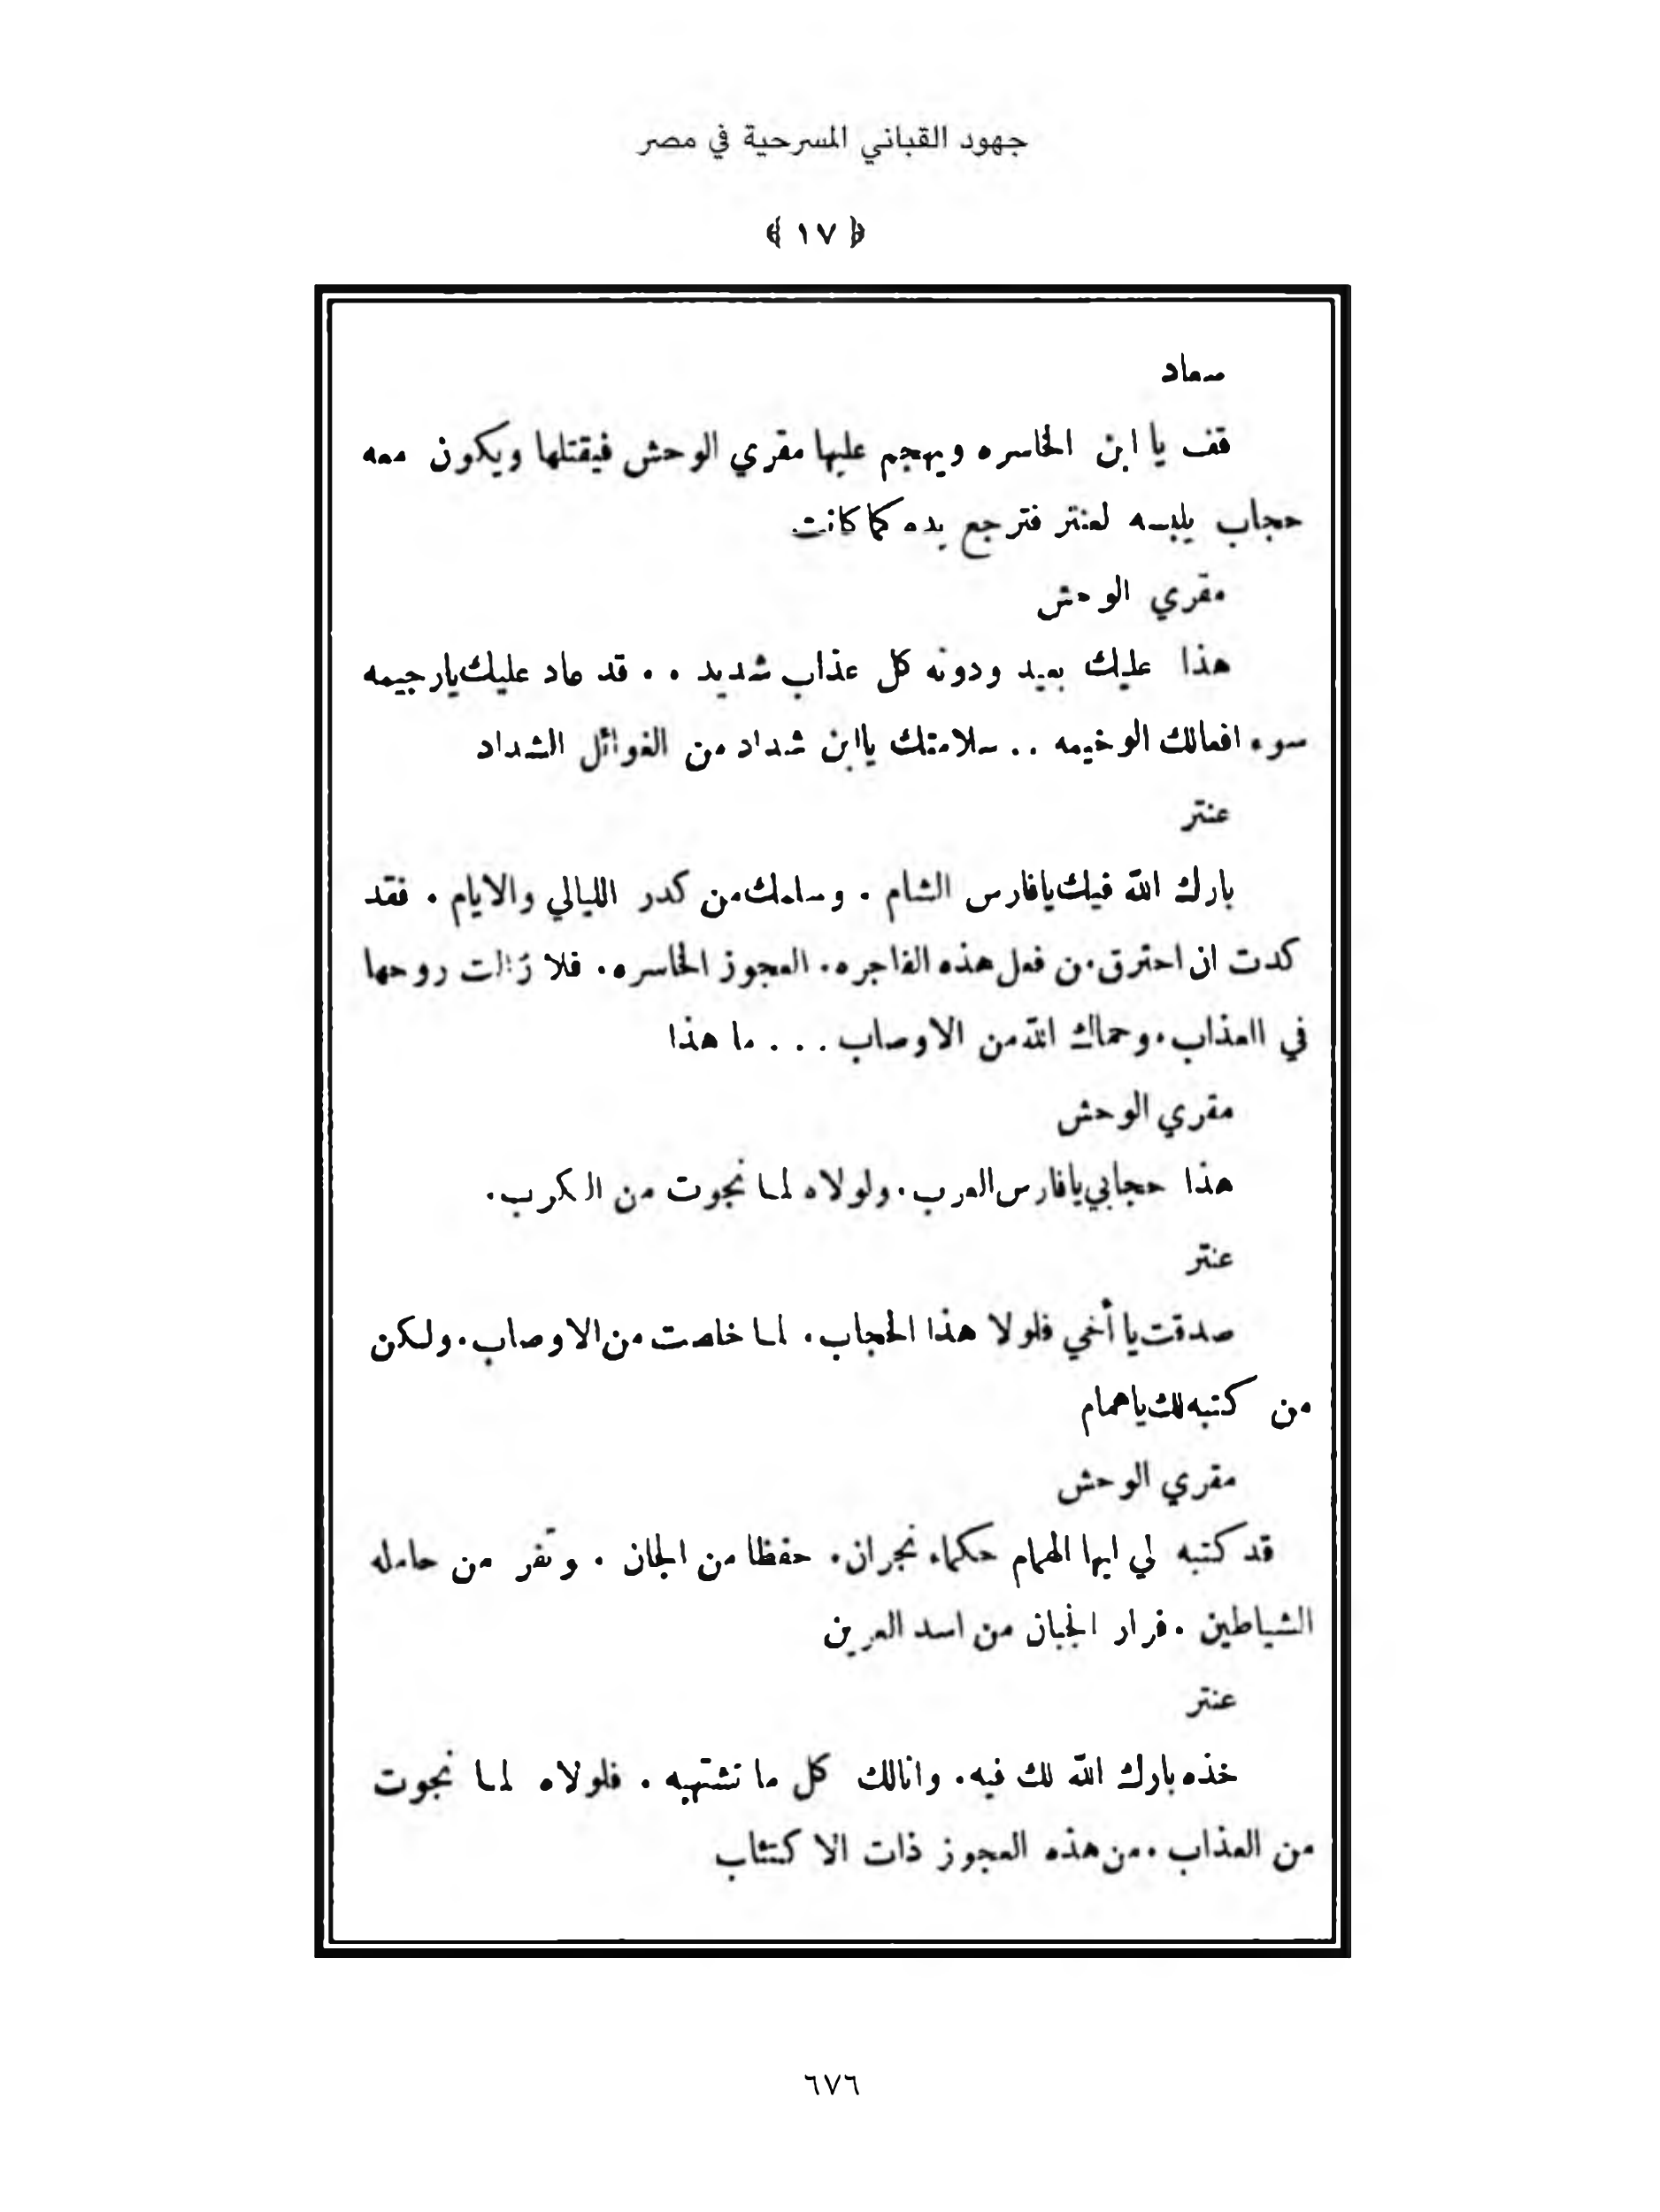 جهود القباني المسرحية في مصر
﴿ ١٧ ﴾
سعاد
قف يا ابن الخاسره ويهجم عليها مقري الوحش فيقتلها ويكون معه
حجاب يلبسه لعنتر فترجع يده كما كانت
مقري الوحش
هذا عليك بعيد ودونه كل عذاب شديد . . قد عاد عليك يارجيمه
سوء افعالك الوخيمه . . سلامتك ياابن شداد من الغوائل الشداد
عنتر
بارك الله فيك يافارس الشام . وسلمك من كدر الليالي والايام . فقد
كدت ان احترق من فعل هذه الفاجره . العجوز الخاسره . فلا زالت روحها
في العذاب . وحماك الله من الاوصاب . . . ما هذا
مقري الوحش
هذا حجابي يافارس العرب . ولولاه لما نجوت من الكرب .
عنتر
صدقت يا أخي فلولا هذا الحجاب . لما خلصت من الاوصاب . ولكن
من كتبه لك ياهمام
مقري الوحش
قد كتبه لي ايها الهمام حكماء نجران . حفظا من الجان . وتفر من حامله
الشياطين . فرار الجبان من اسد العرين
عنتر
خذه بارك الله لك فيه . وانالك كل ما تشتهيه . فلولاه لما نجوت
من العذاب . من هذه العجوز ذات الاكتئاب
٦٧٦